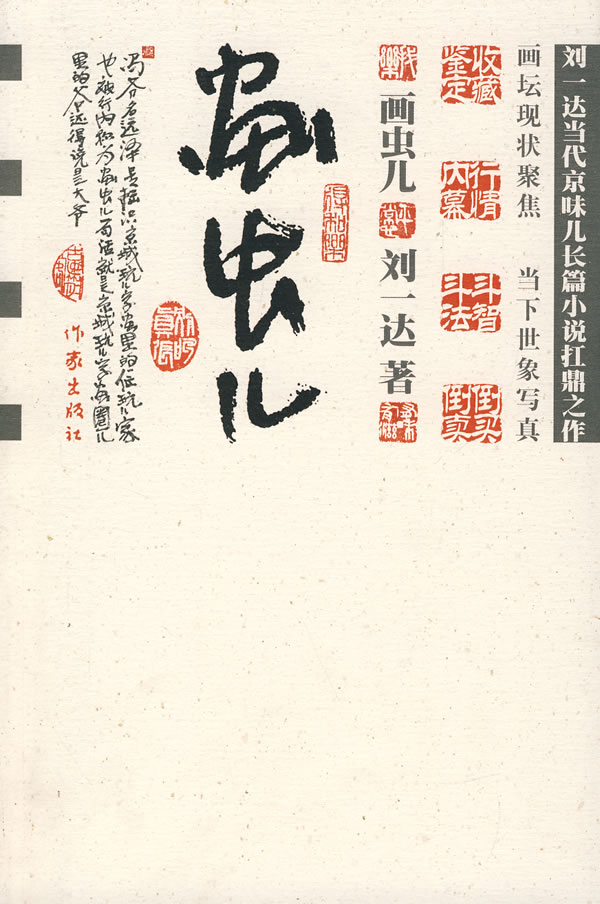 刘一达当代京味儿长篇小说扛鼎之作
画坛现状聚焦 当下世象写真
收藏鉴定 行情内幕 斗智斗法 倒买倒卖
画虫儿 刘一达 著
画虫儿
京城玩儿字画里的玩儿家
也被行内称为画虫儿 就是京城玩儿字画圈儿
里的 还得说是大爷
作家出版社